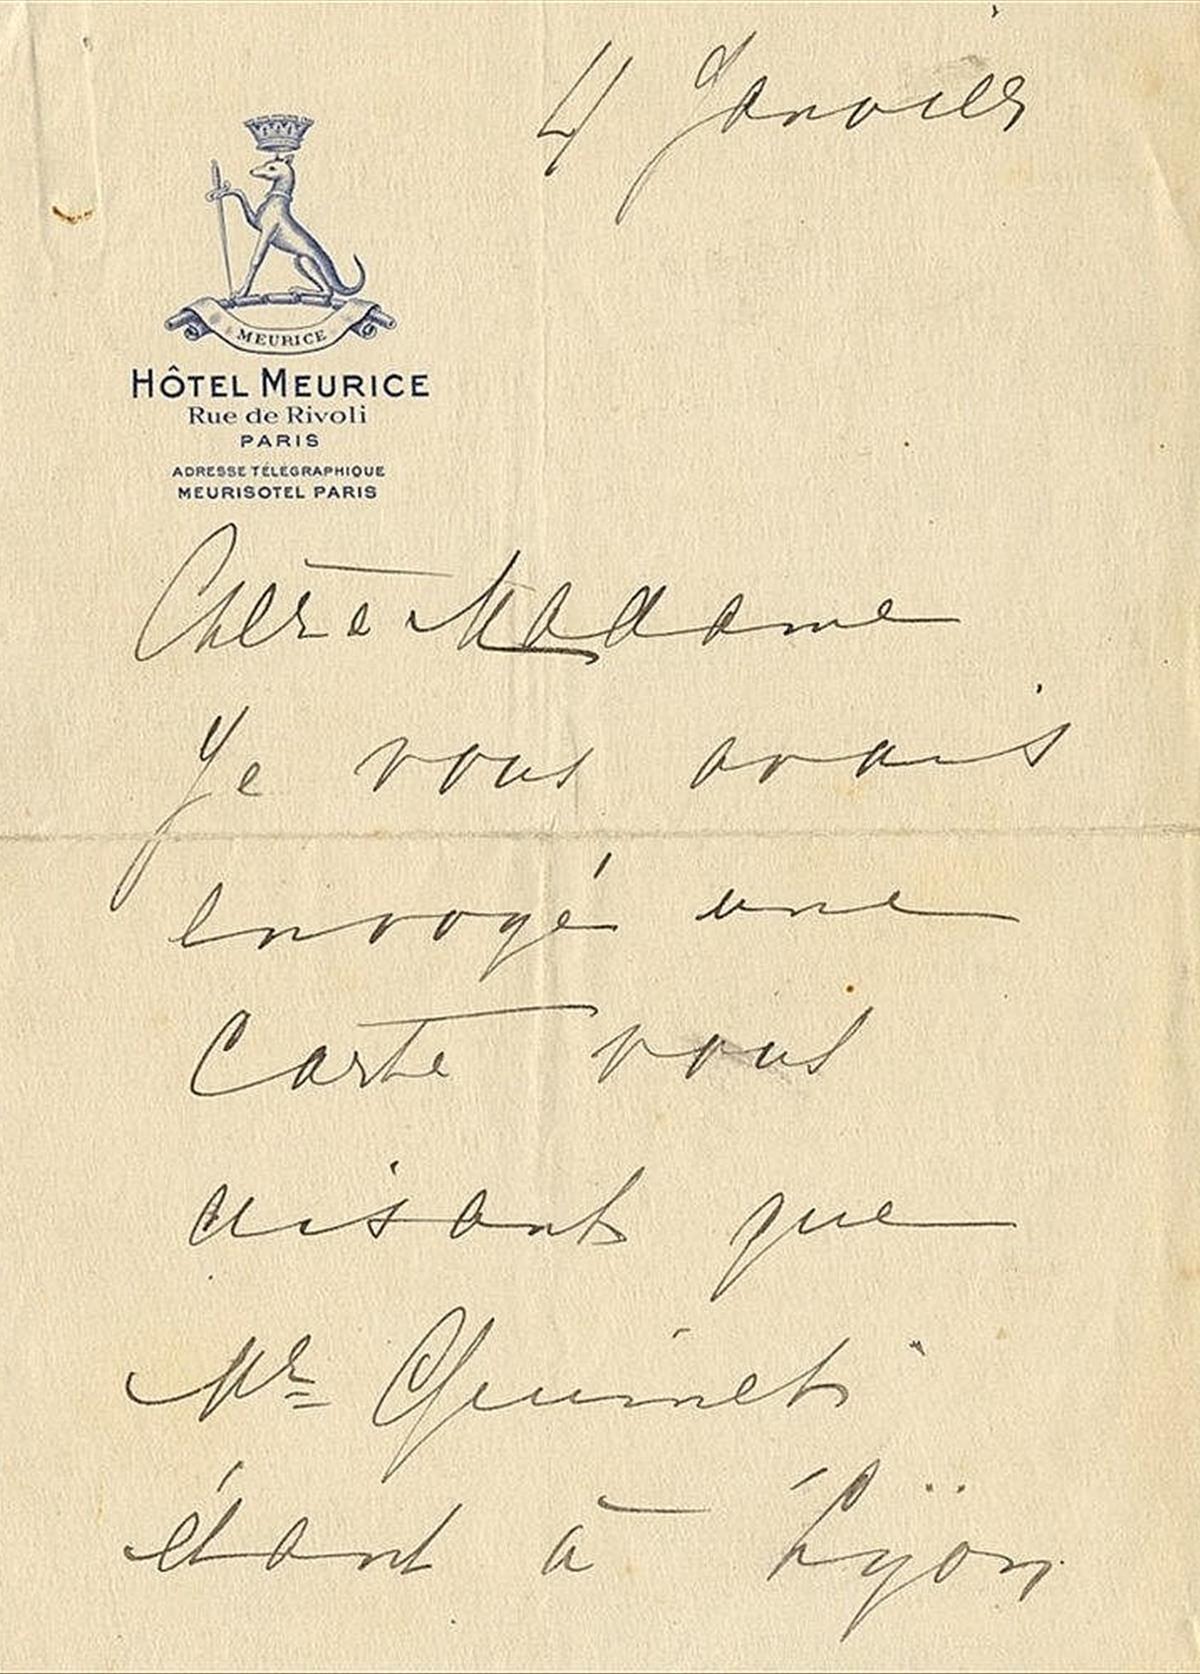 4 Janvier
MEURICE
HÔTEL MEURICE
Rue de Rivoli
PARIS
ADRESSE TÉLÉGRAPHIQUE
MEURISOTEL PARIS
Chère Madame
Je vous avais
envoyé une
Carte vous
disant que
Mr Guimet
étant à Lÿon